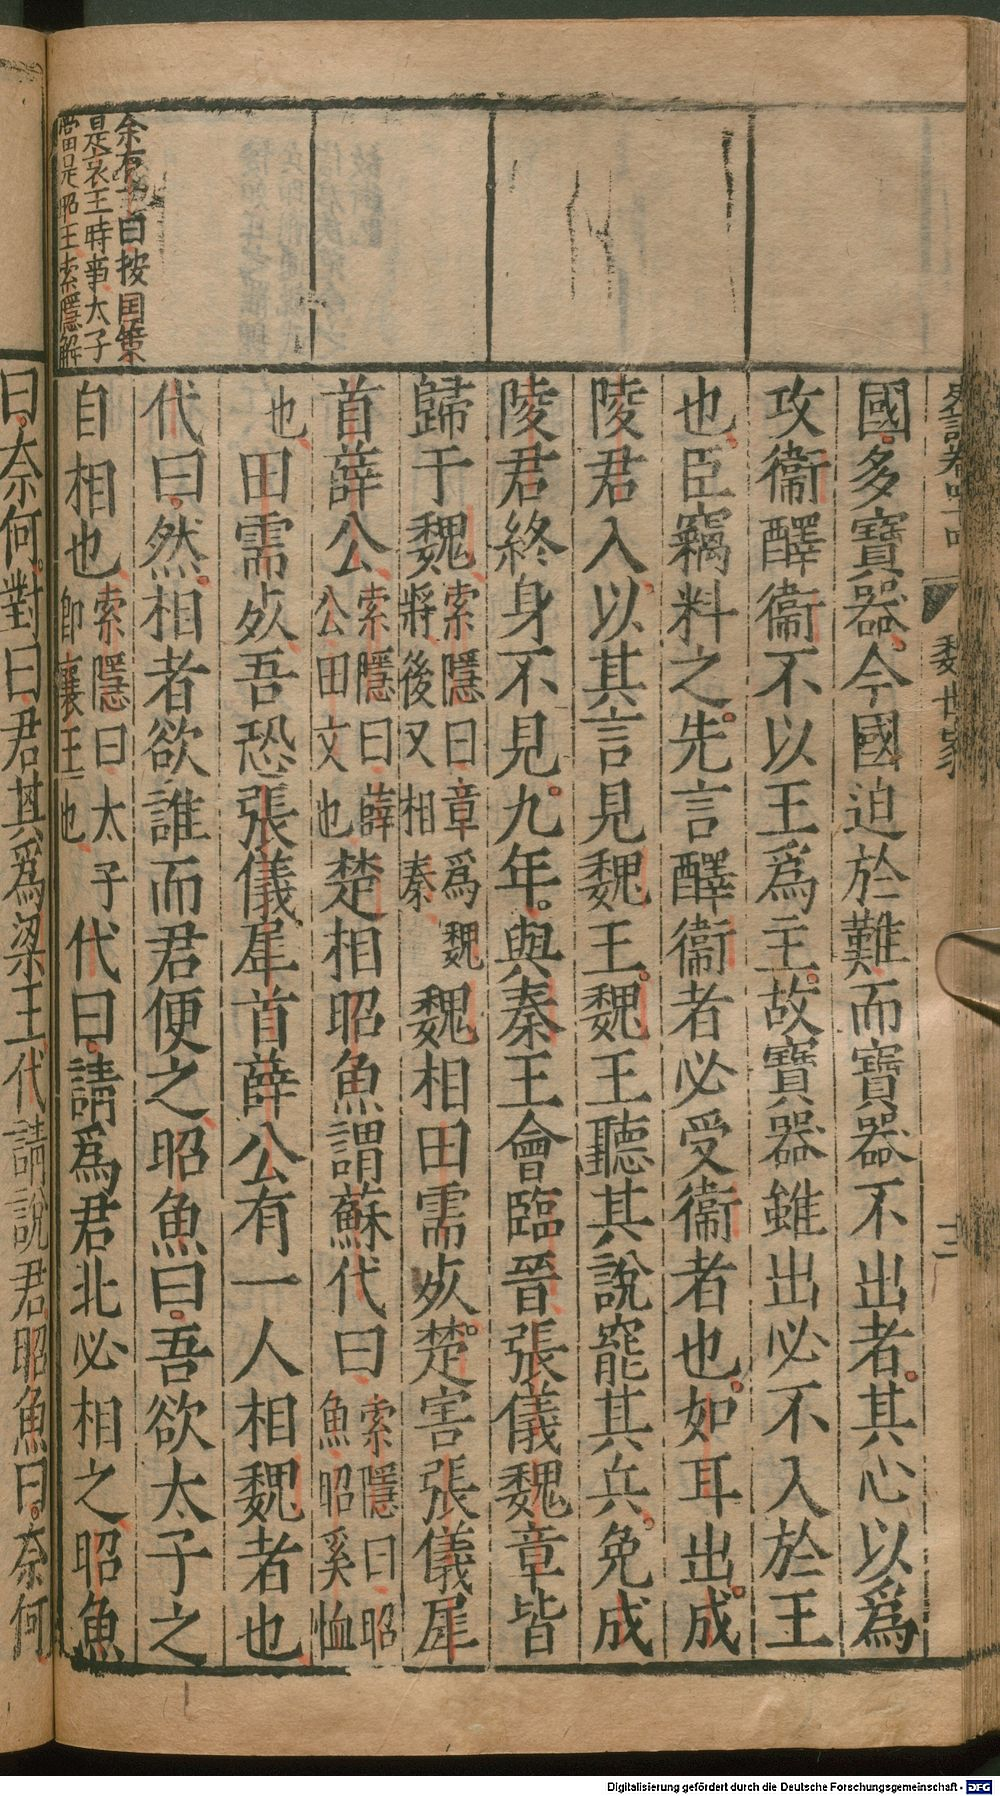 魏世家
三
國多寶器今國迫於難而寶器不出者其心以爲
攻衞醳衞不以王爲主故寶器雖出必不入於王
也臣竊料之先言醳衞者必受衞者也如耳出成
陵君入以其言見魏王魏王聽其說罷其兵免成
陵君終身不見九年與秦王會臨晉張儀魏章皆
歸于魏索隱曰章爲魏將後又相秦魏相田需死楚害張儀犀
首薛公索隱曰薛公田文也楚相昭魚謂蘇代曰索隱曰昭魚昭奚恤
也田需死吾恐張儀犀首薛公有一人相魏者也
代曰然相者欲誰而君便之昭魚曰吾欲太子之
自相也索隱曰太子即襄王也代曰請爲君北必相之昭魚
余有丁曰按国策
是哀王時事太子
當是昭王索隱解
曰奈何對曰君其爲梁王代請說君昭魚曰奈何
Digitalisierung gefördert durch die Deutsche Forschungsgemeinschaft - DFG